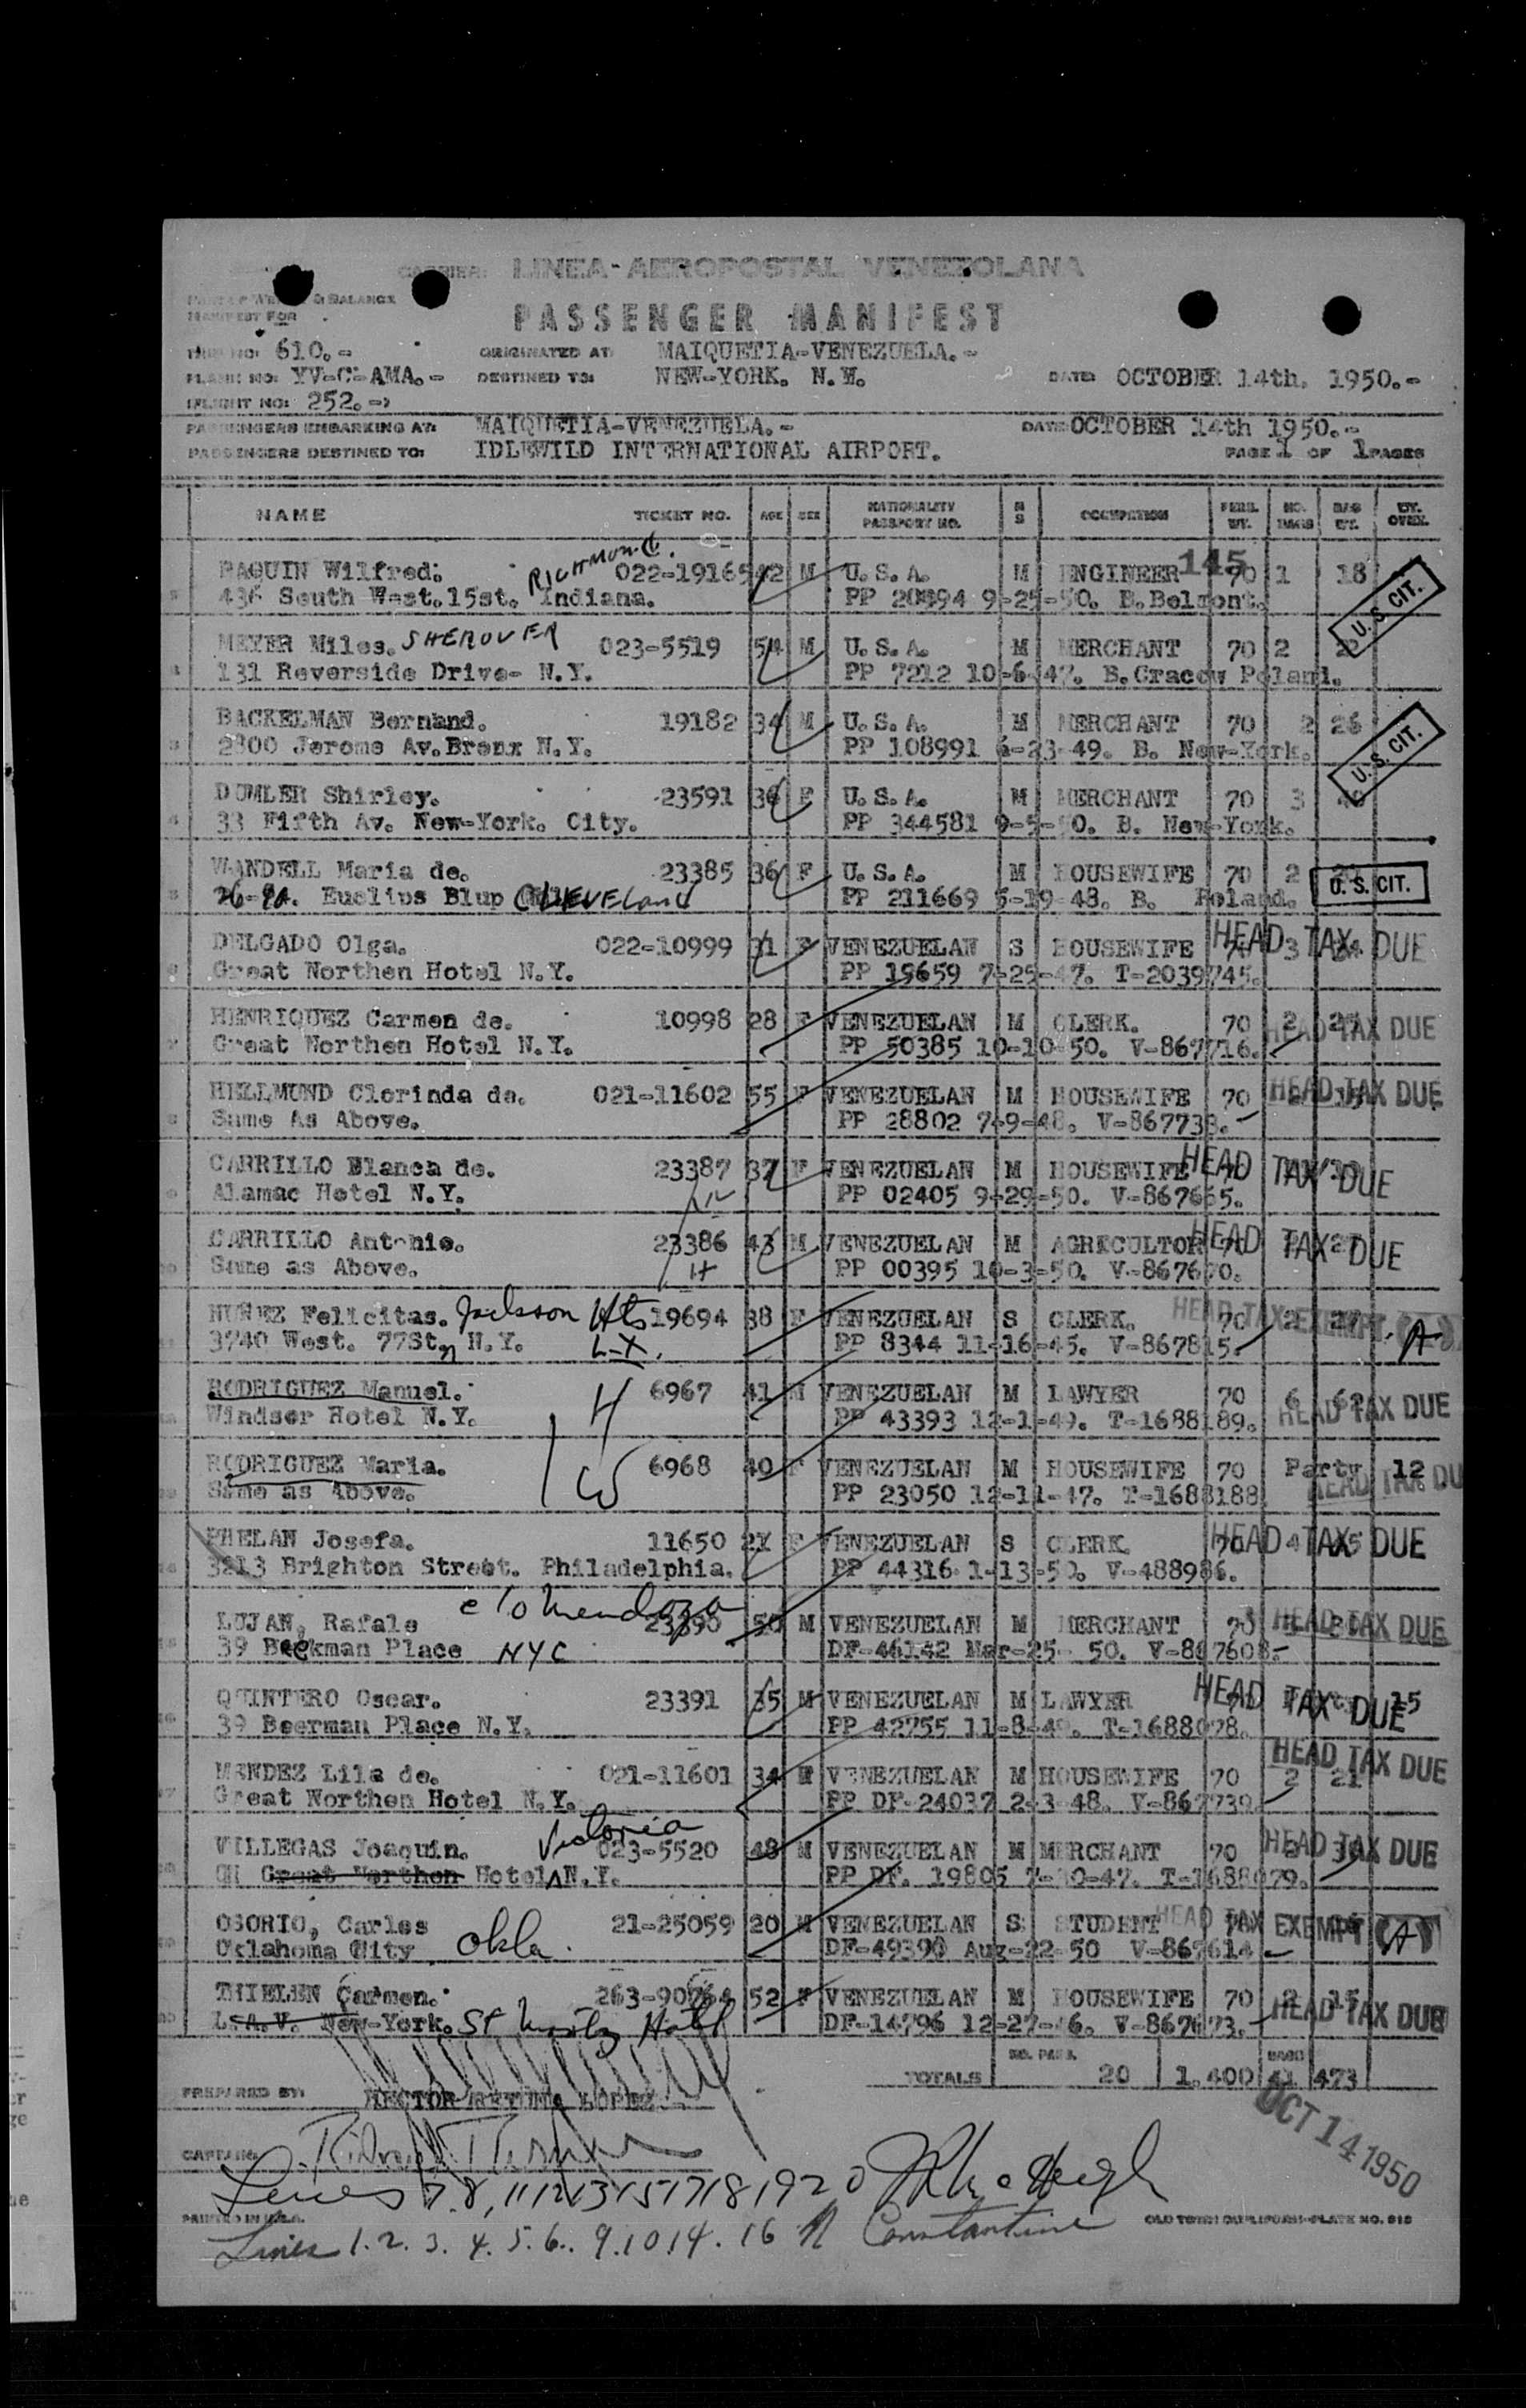 CARRIER: LINEA-AEROPOSTAL VENEZOLANA
& BALANCE
MANIFEST FOR
PASSENGER MANIFEST
TRIP NO: 610.- ORIGINATED AT: MAIQUETIA-VENEZUELA.-
PLANE NO: YV-C-AMA.- DESTINED TO: NEW-YORK. N.Y. DATE: OCTOBER 14th. 1950.-
FLIGHT NO: 252.-
PASSENGERS EMBARKING AT: MAIQUETIA-VENEZUELA.- DATE: OCTOBER 14th 1950.-
PASSENGERS DESTINED TO: IDLEWILD INTERNATIONAL AIRPORT. PAGE 1 OF 1 PAGES
NAME TICKET NO. AGE SEX NATIONALITY PASSPORT NO. M S OCCUPATION PERS. WT. NO. BAGS BAG WT. WT. OVER.
PAQUIN Wilfred. RICHMOND. 022-19165 42 M U.S.A. M ENGINEER 145 70 1 18
436 South West.15st. Indiana. PP 20494 9-25-50. B.Belmont. U.S. CIT.
MEYER Miles. SHEROVER 023-5519 54 M U.S.A. M MERCHANT 70 2
131 Reverside Drive- N.Y. PP 7212 10-6-47. B.Cracow Poland.
BACKELMAN Bernand. 19182 34 M U.S.A. M MERCHANT 70 2 26
2800 Jerome Av.Bronx N.Y. PP 108991 6-23-49. B. New-York. U.S. CIT.
DUMLER Shirley. 23591 36 F U.S.A. M MERCHANT 70 3
33 Fifth Av. New-York. City. PP 344581 9-5-50. B. New-York.
WANDELL Maria de. 23385 36 F U.S.A. M HOUSEWIFE 70 2
Euclips Blup CLEVELand PP 211669 5-19-48. B. Poland. U.S. CIT.
DELGADO Olga. 022-10999 31 F VENEZUELAN S HOUSEWIFE 3 HEAD TAX DUE
Great Northen Hotel N.Y. PP 15659 7-25-47. T-2039745.
HENRIQUEZ Carmen de. 10998 28 F VENEZUELAN M CLERK. 70 2 HEAD TAX DUE
Great Northen Hotel N.Y. PP 50385 10-10-50. V-867716.
HELLMUND Clorinda de. 021-11602 55 F VENEZUELAN M HOUSEWIFE 70 HEAD TAX DUE
Same As Above. PP 28802 7-9-48. V-867738.
CARRILLO Blanca de. 23387 37 F VENEZUELAN M HOUSEWIFE HEAD TAX DUE
Alamac Hotel N.Y. W PP 02405 9-29-50. V-867665.
CARRILLO Antonio. 23386 43 M VENEZUELAN M AGRICULTOR HEAD TAX DUE
Same as Above. H PP 00395 10-3-50. V-867670.
NUÑEZ Felicitas. Jackson Hts 19694 38 F VENEZUELAN S CLERK. 70 2 HEAD TAX EXEMPT A
3740 West. 77St, N.Y. L.I. PP 8344 11-16-45. V-867815.
RODRIGUEZ Manuel. H 6967 41 M VENEZUELAN M LAWYER 70 6 HEAD TAX DUE
Windser Hotel N.Y. PP 43393 12-1-49. T-1688189.
RODRIGUEZ Maria. W 6968 40 F VENEZUELAN M HOUSEWIFE 70 Party 12
Same as Above. PP 23050 12-11-47. T-1688188 HEAD TAX DU
PHELAN Josefa. 11650 21 F VENEZUELAN S CLERK. HEAD TAX DUE
3213 Brighton Street. Philadelphia. PP 44316 1-13-50. V-488986.
c/o Mendoza
LUJAN, Rafale 23390 50 M VENEZUELAN M MERCHANT HEAD TAX DUE
39 Beekman Place NYC DF-46142 Mar-25- 50. V-867608-
QUINTERO Oscar. 23391 35 M VENEZUELAN M LAWYER HEAD TAX DUE 15
39 Beerman Place N.Y. PP 42755 11-8-49. T-1688078.
MENDEZ Lila de. 021-11601 34 VENEZUELAN M HOUSEWIFE 70 2 21 HEAD TAX DUE
Great Northen Hotel N.Y. PP DF-24037 2-3-48. V-867739.
VILLEGAS Joaquin. Victoria 023-5520 48 M VENEZUELAN M MERCHANT 70 HEAD TAX DUE
Great Northen Hotel N.Y. PP DF. 19805 7-10-47. T-1688079.
OSORIO, Carlos 21-25059 20 M VENEZUELAN S STUDENT HEAD TAX EXEMPT A
Oklahoma City Okla. DF-49390 Aug-22-50 V-867614
THIELEN Carmen. 52 F VENEZUELAN M HOUSEWIFE 70 2 15 HEAD TAX DUE
L.A.V. New-York. St Moritz Hotel DF-14796 12-27-46. V-867673.
TOTALS NO. PASS. 20 1,400 BAGS 41 473
PREPARED BY: HECTOR LOPEZ
OCT 14 1950
CAPTAIN:
Lines 7.8,11 12 13 15 17 18 19 20
PRINTED IN U.S.A. OLD TOWN DUPLIFORM-PLATE NO.
Lines 1.2.3.4.5.6..9.10.14.16 Constantine